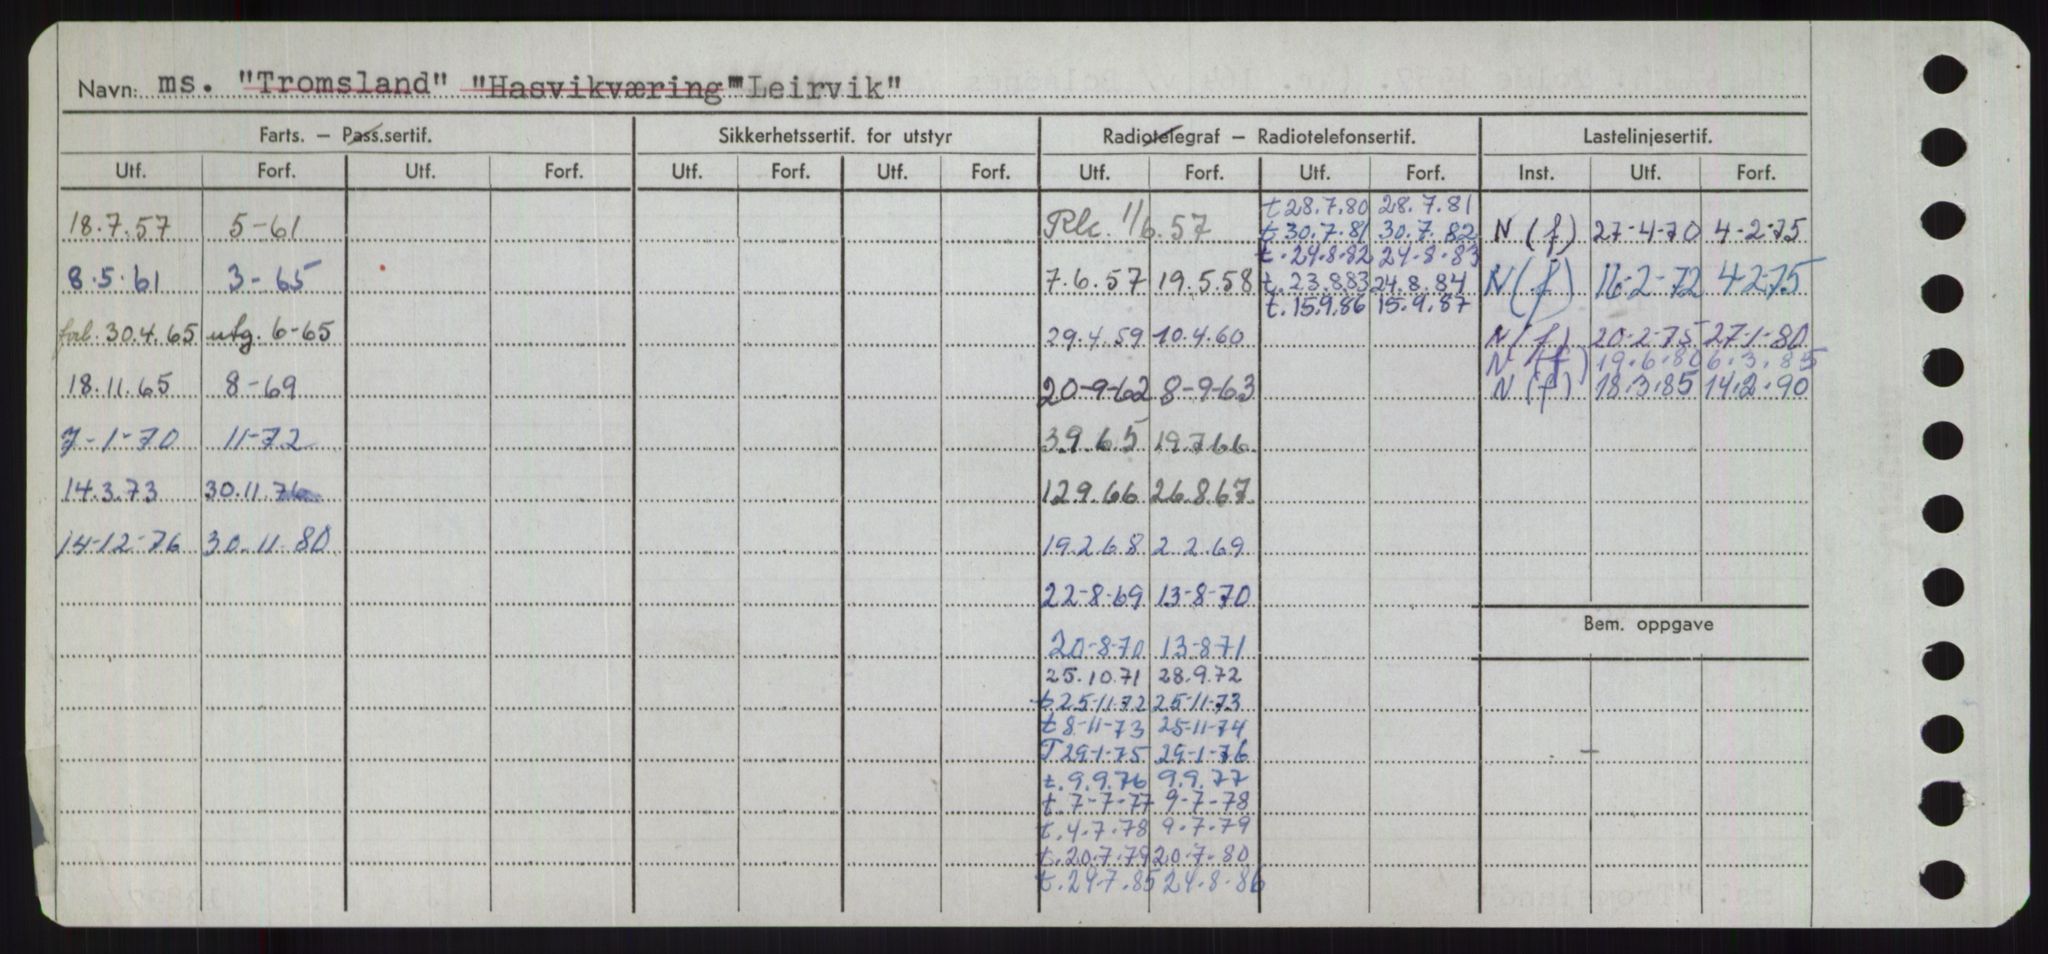 Navn: ms. "Tromsland" "Hasvikværing" "Leirvik"
Farts. – Pass.sertif. Sikkerhetssertif. for utstyr Radiotelegraf – Radiotelefonsertif. Lastelinjesertif.
Utf. Forf. Utf. Forf. Utf. Forf. Utf. Forf. Utf. Forf. Utf. Forf. Inst. Utf. Forf.
t 28.7.80 28.7.81
18.7.57 5-61 1/6.57 t 30.7.81 30.7.82 N (f) 27-4-70 4-2-75
t.24.8.82 24.8.83
8.5.61 3-65 7.6.57 19.5.58 t.23.8.83 24.8.84 N (f) 16-2-72 4-2-75
t.15.9.86 15.9.87
forl. 30.4.65 utg. 6-65 29.4.59 10.4.60 N (f) 20-2-75 27-1-80
N (f) 19.6.80 6.3.85
18.11.65 8-69 20-9-62 8-9-63 N (f) 18.3.85 14.2.90
7-1-70 11-72 3.9.65 19.7.66
14.3.73 30.11.76 12.9.66 26.8.67
14-12-76 30.11.80 19.2.68 2.2.69
22-8-69 13-8-70
20-8-70 13-8-71
Bem. oppgave
25.10.71 28.9.72
t 25-11-72 25-11-73
t 8-11-73 25-11-74
T 29-1-75 29-1-76
t. 9.9.76 9.9.77
t. 7-7-77 9-7-78
t. 4.7.78 9.7.79
t. 20.7.79 20.7.80
t. 24.7.85 24.8.86